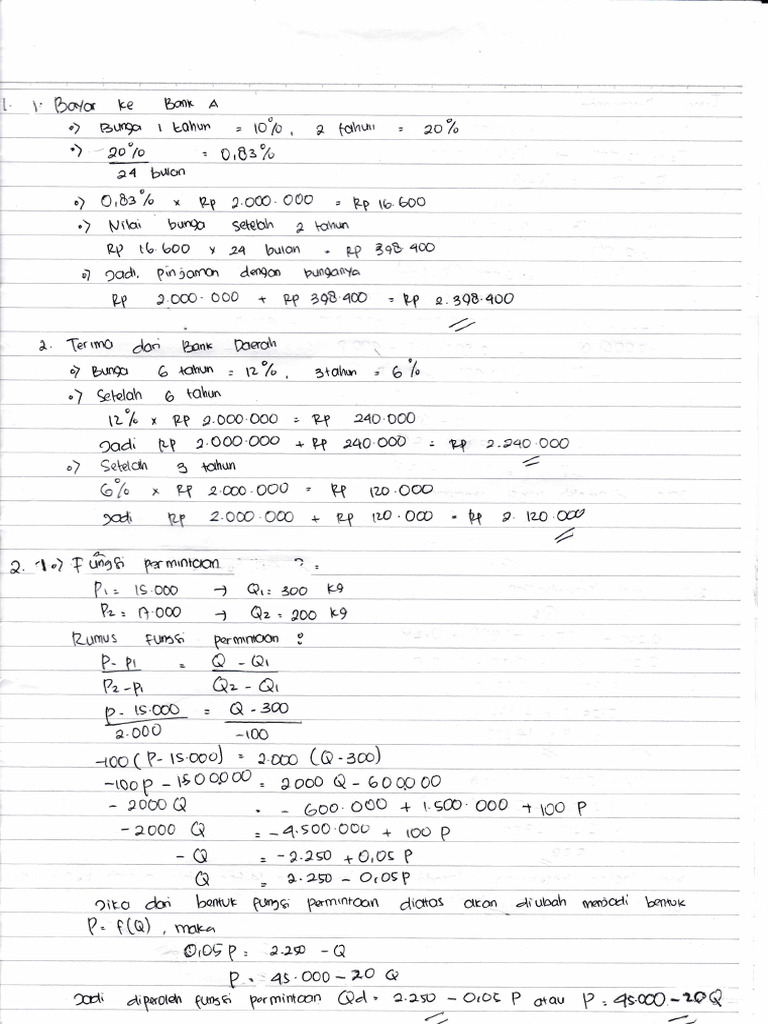 1. 1. Bayar ke Bank A
•) Bunga 1 tahun = 10%, 2 tahun = 20%
•) 20% / 24 bulan = 0,83%
•) 0,83% x Rp 2.000.000 = Rp 16.600
•) Nilai bunga setelah 2 tahun
Rp 16.600 x 24 bulan = Rp 398.400
•) Jadi, pinjaman dengan bunganya
Rp 2.000.000 + Rp 398.400 = Rp 2.398.400
2. Terima dari Bank Daerah
•) Bunga 6 tahun = 12%, 3 tahun = 6%
•) Setelah 6 tahun
12% x Rp 2.000.000 = Rp 240.000
Jadi Rp 2.000.000 + Rp 240.000 = Rp 2.240.000
•) Setelah 3 tahun
6% x Rp 2.000.000 = Rp 120.000
Jadi Rp 2.000.000 + Rp 120.000 = Rp 2.120.000
2. 1•) Fungsi permintaan ? :
P1 = 15.000 → Q1 = 300 kg
P2 = 17.000 → Q2 = 200 kg
Rumus fungsi permintaan :
P - P1 = Q - Q1
P2 - P1 Q2 - Q1
P - 15.000 = Q - 300
2.000 -100
-100 (P - 15.000) = 2.000 (Q - 300)
-100 P - 1500.000 = 2000 Q - 600.000
- 2000 Q = - 600.000 + 1.500.000 + 100 P
- 2000 Q = - 4.500.000 + 100 P
- Q = - 2.250 + 0,05 P
Q = 2.250 - 0,05 P
Jika dari bentuk fungsi permintaan diatas akan diubah menjadi bentuk
P = f(Q), maka
0,05 P = 2.250 - Q
P = 45.000 - 20 Q
Jadi diperoleh fungsi permintaan Qd = 2.250 - 0,05 P atau P = 45.000 - 20 Q